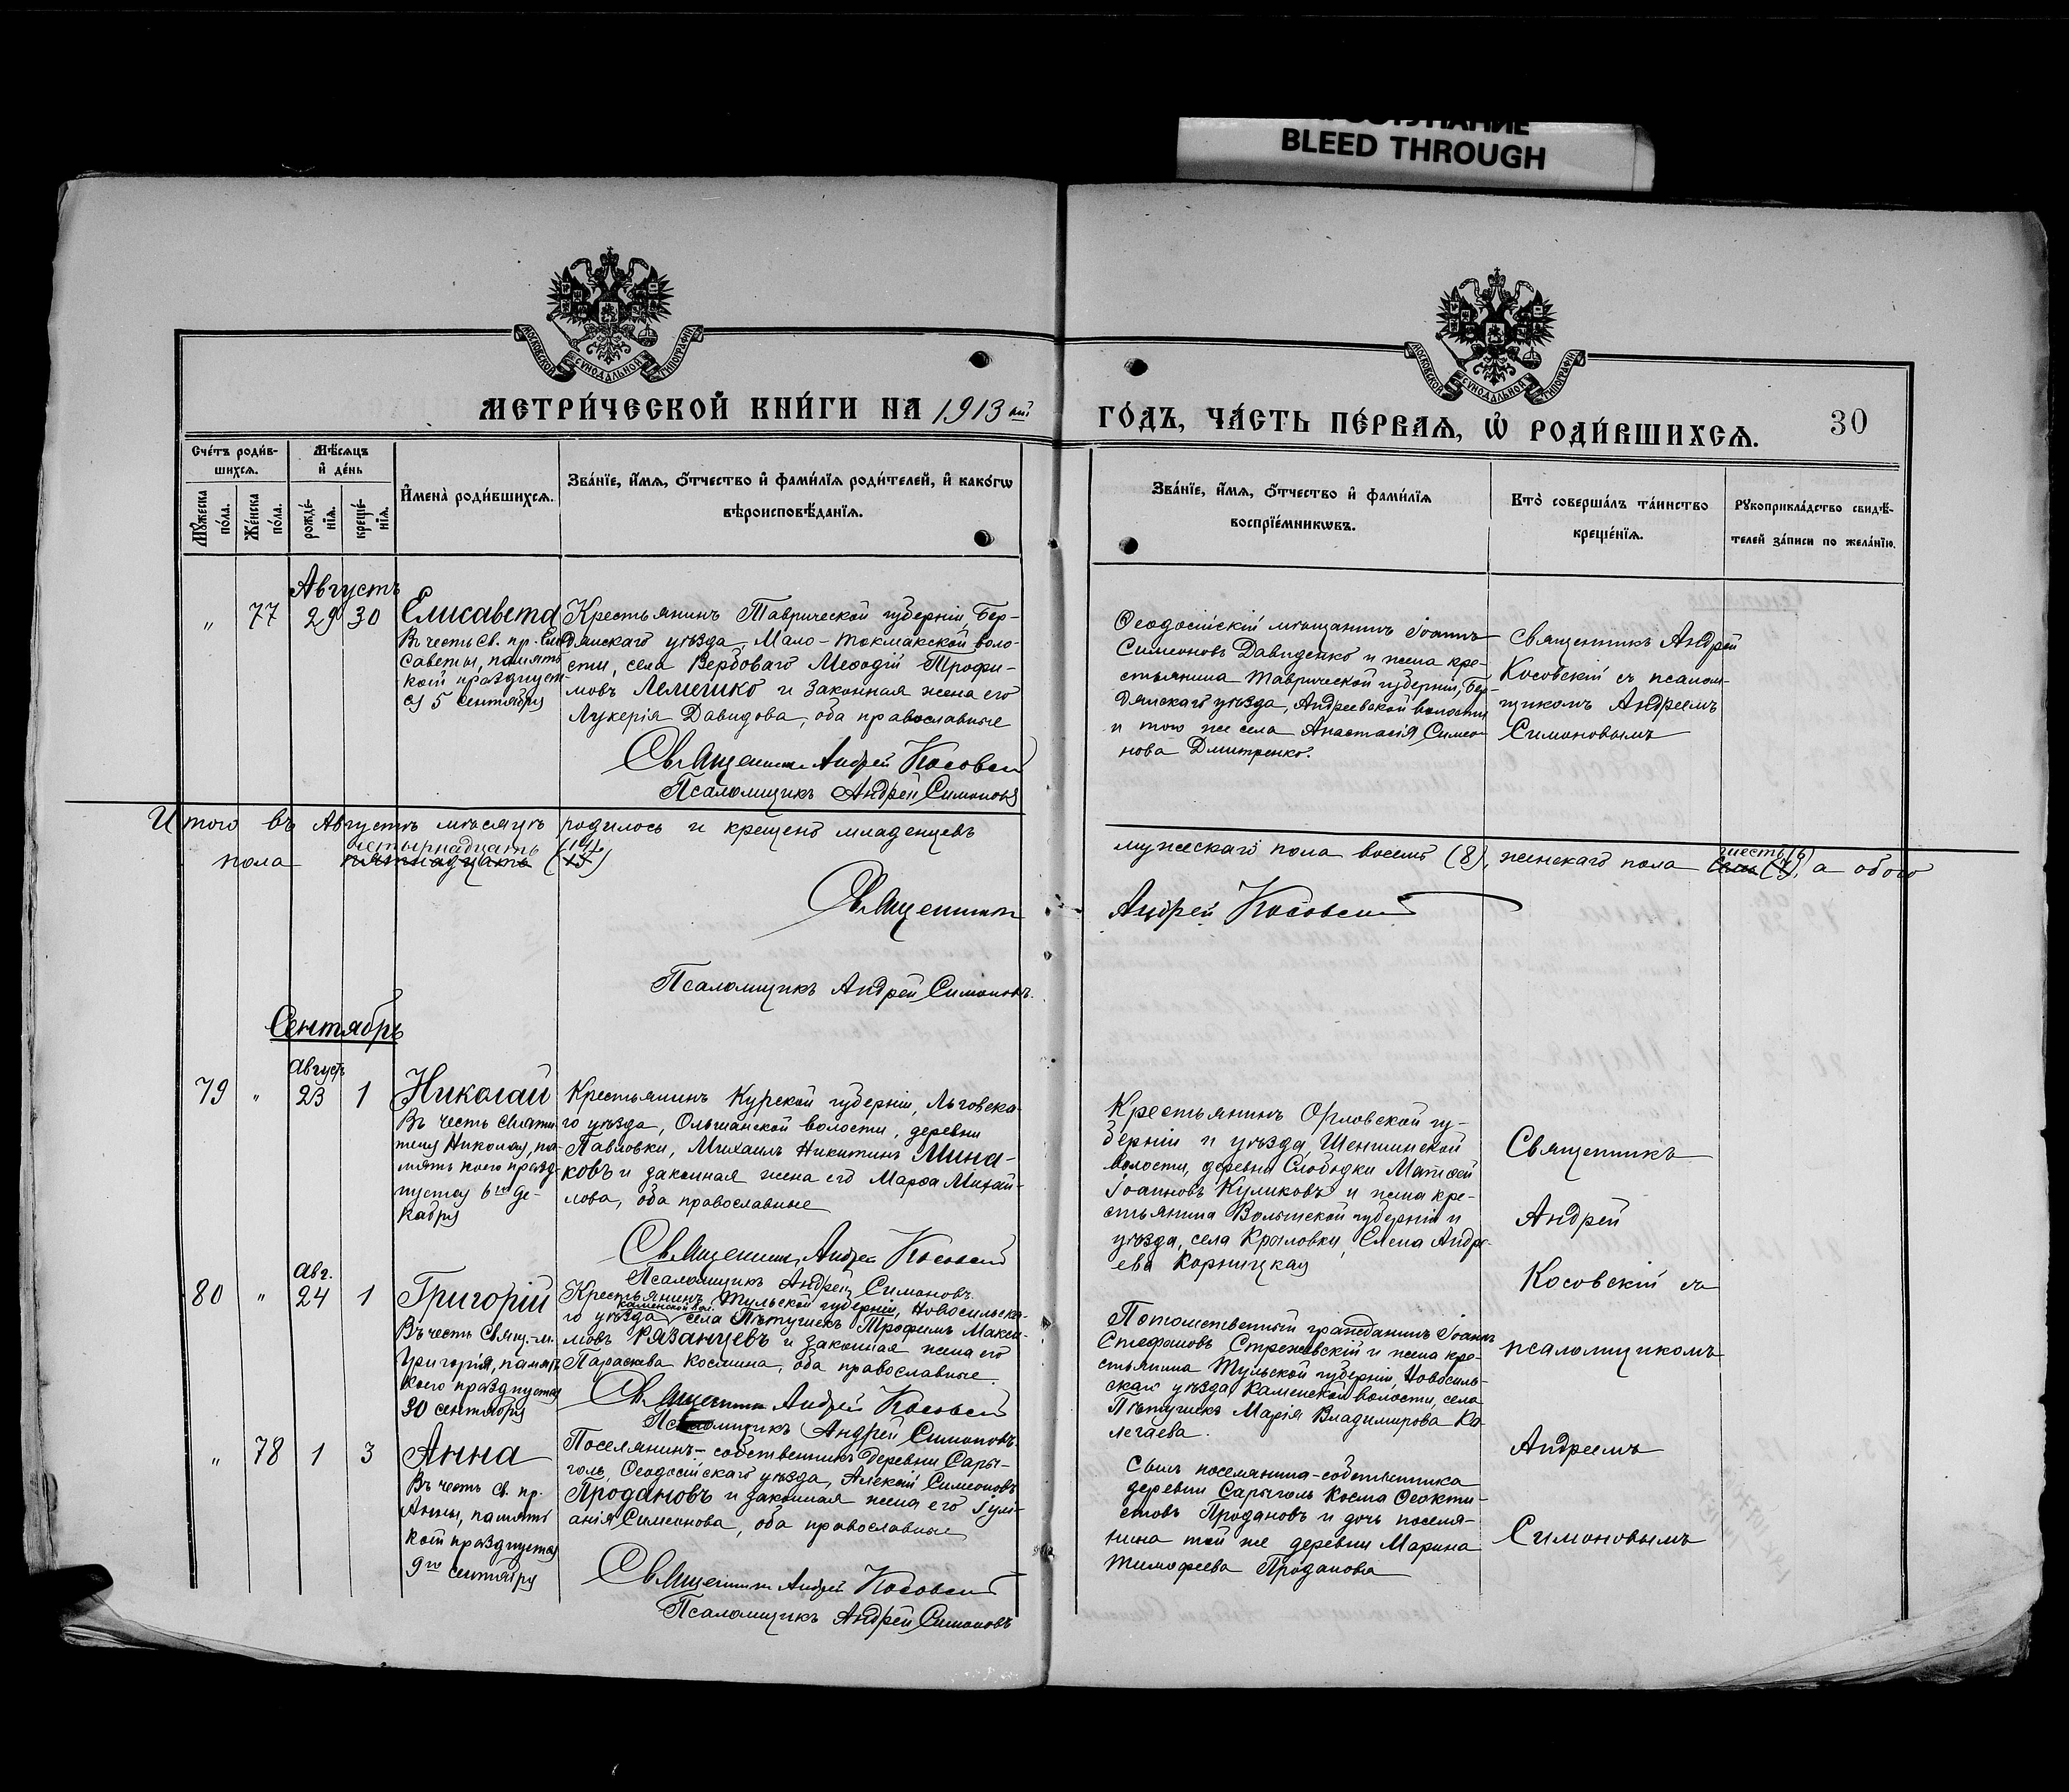 ПРОСТУПАНИЕ
BLEED THROUGH
МОСКОВСКОЙ СѴНОДАЛЬНОЙ ТИПОГРАФІИ
МОСКОВСКОЙ СѴНОДАЛЬНОЙ ТИПОГРАФІИ
МЕТРИ́ЧЕСКОЙ КНИ́ГИ НА 1913 ый
ГО́ДЪ, ЧА́СТЬ ПЕ́РВАѦ, Ѡ҆ РОДИ́ВШИХСѦ.
30
Сче́тъ роди́в-
шихсѧ.
Мѣ́сѧцъ
и҆ де́нь
Мꙋ́жеска
по́ла.
Же́нска
по́ла.
рожде́-
нїѧ.
креще́-
нїѧ.
И҆мена̀ роди́вшихсѧ.
Зва́нїе, и҆́мѧ, ѻ҆́тчество и҆ фами́лїѧ роди́телей, и҆ како́гѡ
вѣроисповѣ́данїѧ.
Зва́нїе, и҆́мѧ, ѻ҆́тчество и҆ фами́лїѧ
воспрїе́мникѡвъ.
Кто̀ соверша́лъ та́инство
креще́нїѧ.
Рꙋкоприкла́дство свидѣ́-
телей за́писи по жела́нїю.
Августъ
„ 77 29 30 Елисавета
Въ честь св. пр. Ели-
саветы, память
коей празднует-
ся 5 сентября
Крестьянинъ Таврической губерніи, Бер-
дянскаго уѣзда, Мало-Токмакской воло-
сти, села Вербоваго Меѳодій Трофи-
мовъ Лемешко и законная жена его
Лукерія Давидова, оба православные
Священникъ Андрей Косовскій
Псаломщикъ Андрей Симоновъ
Ѳеодосійскій мѣщанинъ Іоаннъ
Симеоновъ Давиденко и жена кре-
стьянина Таврической губерніи, Бер-
дянскаго уѣзда, Андреевской волости
и того же села Анастасія Симео-
нова Дмитренко.
Священникъ Андрей
Косовскій съ псалом-
щикомъ Андреемъ
Симоновымъ
Итого въ Августѣ мѣсяцѣ родилось и крещено младенцевъ
мужескаго пола восемь (8), женскаго пола шесть (6) семь (7), а обоего
пола четырнадцать (14) пятнадцать (15)
Священникъ Андрей Косовскій
Псаломщикъ Андрей Симоновъ.
Сентябрь
Августъ
79 „ 23 1 Николай
Въ честь Святи-
теля Николая, па-
мять коего празд-
нуется 6го де-
кабря
Крестьянинъ Курской губерніи, Льговска-
го уѣзда, Ольшанской волости, деревни
Павловки, Михаилъ Никитинъ Мина-
ковъ и законная жена его Марѳа Михай-
лова, оба православные
Священникъ Андрей Косовскій
Псаломщикъ Андрей Симоновъ.
Крестьянинъ Орловской гу-
берніи и уѣзда, Шеншинской
волости, деревни Слободки Матѳей
Іоанновъ Куликовъ и жена кре-
стьянина Волынской губерніи и
уѣзда, села Крыловки, Елена Андре-
ева Корницкая
Священникъ
Андрей
Косовскій съ
псаломщикомъ
Андреемъ
Симоновымъ
Авг.
80 „ 24 1 Григорій
Въ честь Свящ.-м.
Григорія, память
коего празднуется
30 сентября
Крестьянинъ Тульской губерніи, Новосильска-
го уѣзда Каменской вол. села Пѣтушекъ Трофимъ Макси-
мовъ Рязанцевъ и законная жена его
Параскева Космина, оба православные.
Священникъ Андрей Косовскій
Псаломщикъ Андрей Симоновъ
Потомственный гражданинъ Іоаннъ
Стефановъ Стрежевскій и жена кре-
стьянина Тульской губерніи, Новосиль-
скаго уѣзда Каменской волости, села
Пѣтушекъ Марія Владимирова Ка-
легаева.
„ 78 1 3 Анна
Въ честь св. пр.
Анны, память
коей празднуется
9го сентября
Поселянинъ-собственникъ деревни Сары-
голь, Ѳеодосійскаго уѣзда, Алексій Симеоновъ
Продановъ и законная жена его Іули-
анія Симеонова, оба православные
Священникъ Андрей Косовскій
Псаломщикъ Андрей Симоновъ
Сынъ поселянина-собственника
деревни Сарыголь Косма Ѳеокти-
стовъ Продановъ и дочь поселя-
нина той же деревни Марина
Тимофеева Проданова